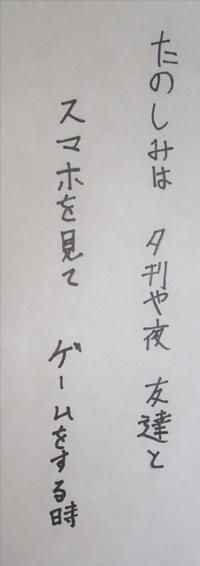 たのしみは 夕刊や夜 友達と
スマホを見て ゲームをする時